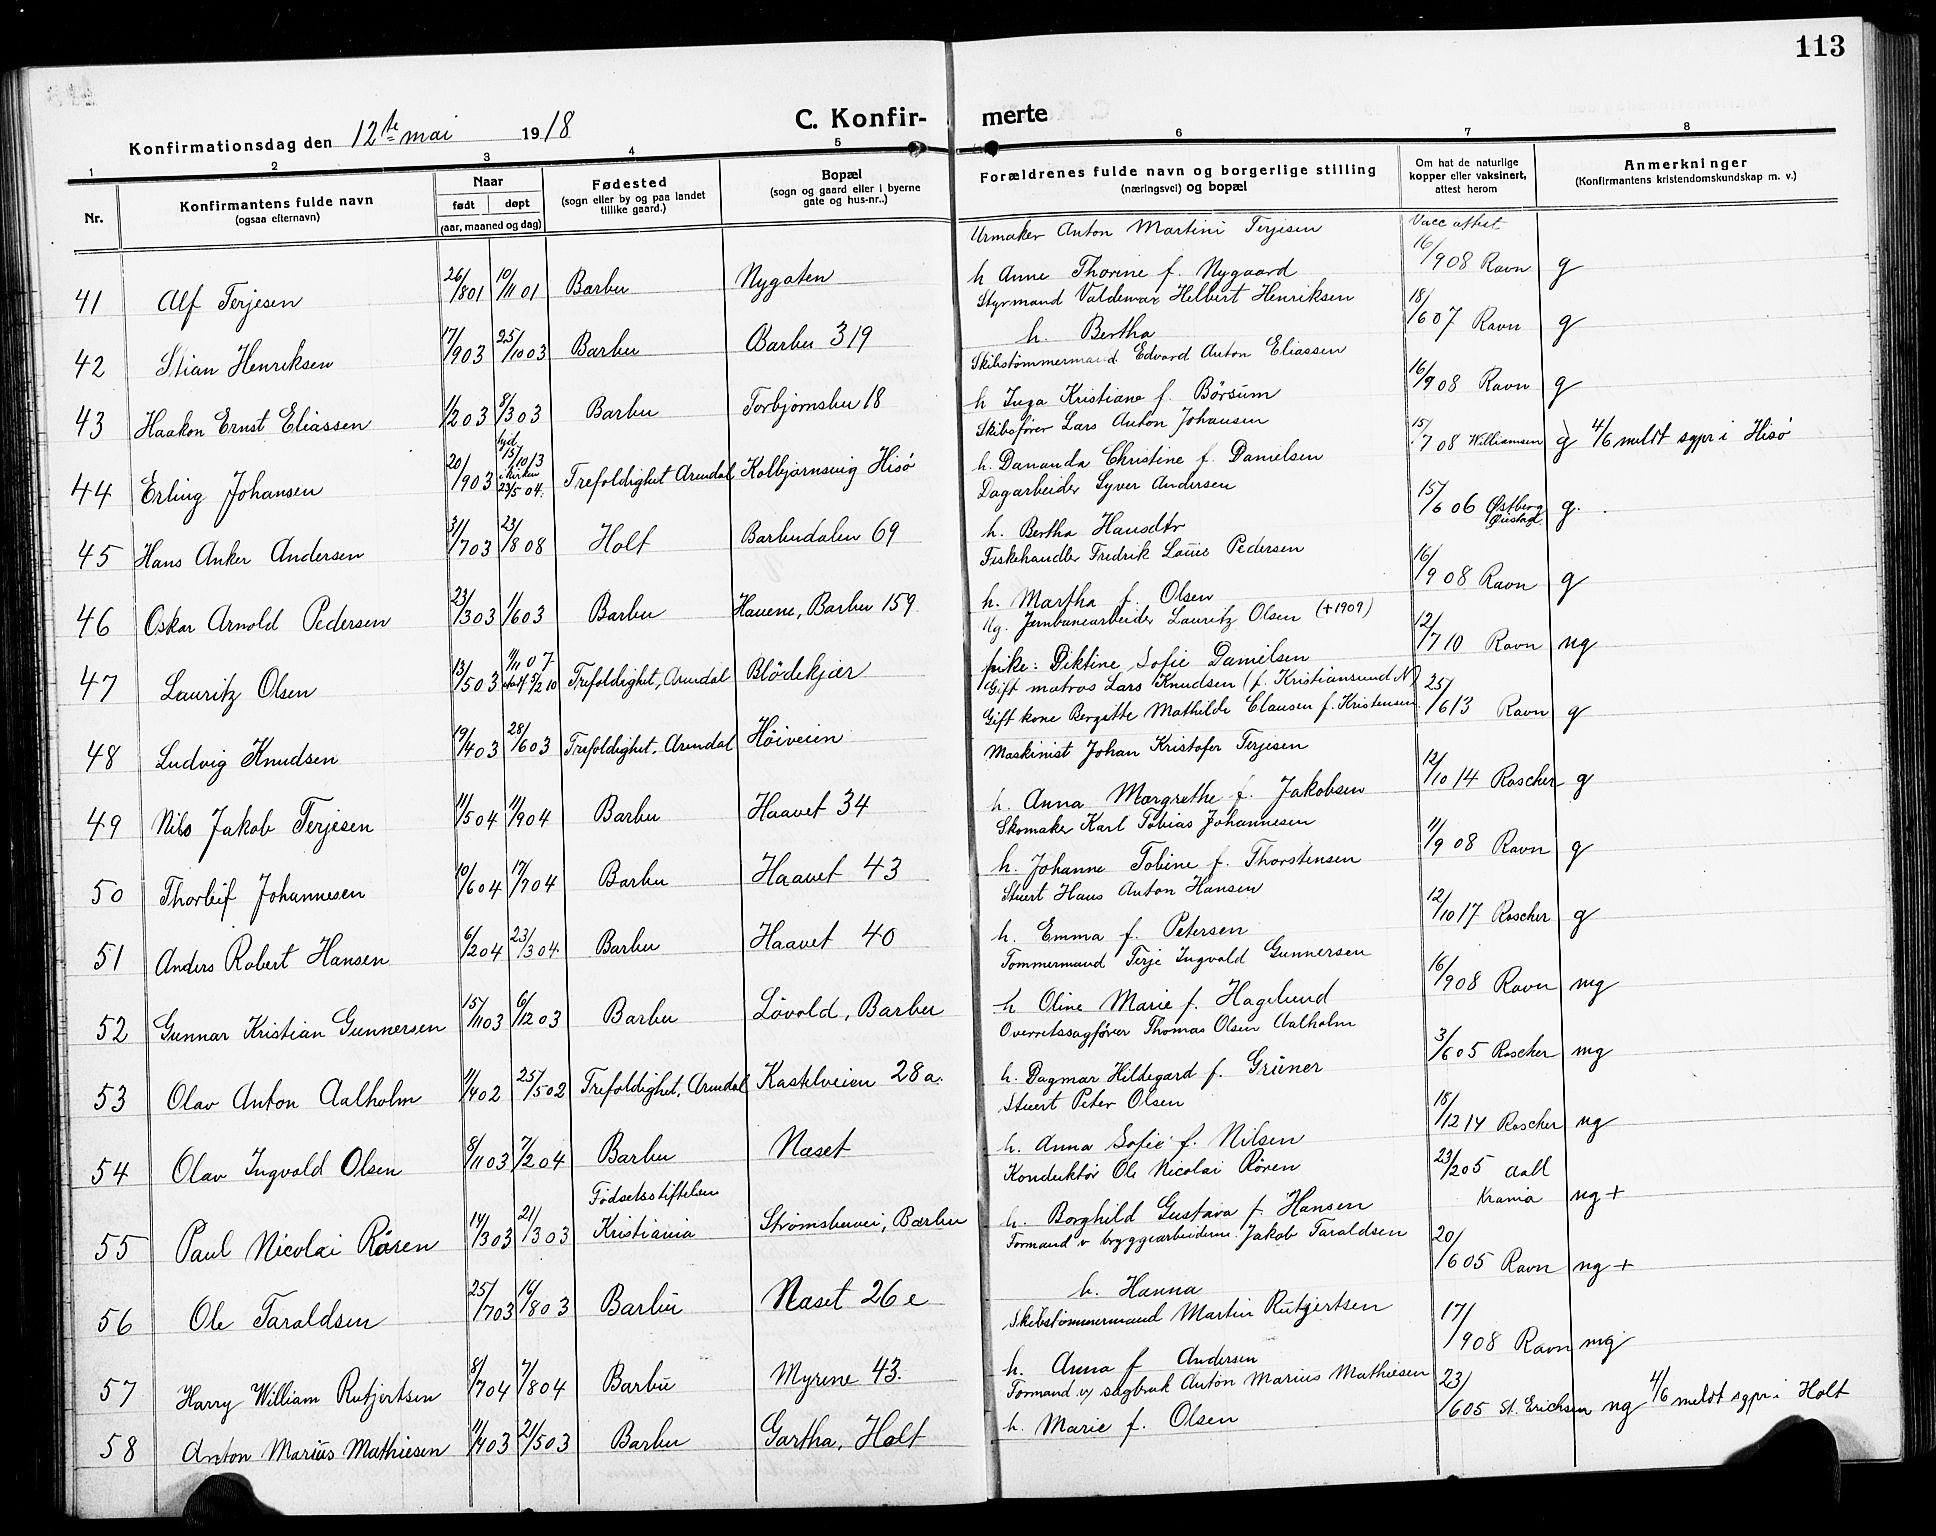 113
C. Konfir- merte
Konfirmationsdag den 12te mai 1918
1 2 3 4 5 6 7 8
Nr.
Konfirmantens fulde navn
(ogsaa efternavn)
Naar
født døpt
(aar, maaned og dag)
Fødested
(sogn eller by og paa landet
tillike gaard.)
Bopæl
(sogn og gaard eller i byerne
gate og hus-nr..)
Forældrenes fulde navn og borgerlige stilling
(næringsvei) og bopæl
Om hat de naturlige
kopper eller vaksinert,
attest herom
Anmerkninger
(Konfirmantens kristendomskundskap m. v.)
Urmaker Anton Martini Terjesen Vacc attest
41 Alf Terjesen 26/8 01 10/11 01 Barbu Nygaten h Anne Thorine f. Nygaard 16/9 08 Ravn g
Styrmand Valdemar Helbert Henriksen
42 Stian Henriksen 17/9 03 25/10 03 Barbu Barbu 319 h. Bertha 18/6 07 Ravn g
Skibstømmermand Edvard Anton Eliassen
43 Haakon Ernst Eliassen 1/2 03 8/3 03 Barbu Torbjørnsbu 18 h Inga Kristiane f. Børsum 16/9 08 Ravn g
Skibsfører Lars Anton Johansen
44 Erling Johansen 20/9 03 hjd 15/10 03 i kirken 23/5 04. Trefoldighet Arendal Kolbjørnsvig Hisø h. Dananda Christine f. Danielsen 15/7 08 Williamsen g 4/6 meldt sgpr i Hisø
Dagarbeider Syver Andersen
45 Hans Anker Andersen 31/7 03 23/8 08 Holt Barbudalen 69 h. Bertha Hansdtr 15/6 06 Østberg g.
Fiskehandler Fredrik Louis Pedersen
46 Oskar Arnold Pedersen 23/3 03 1/6 03 Barbu Havene, Barbu 159 h. Martha f. Olsen 16/9 08 Ravn g
Ug. Jernbanearbeider Lauritz Olsen (+1909)
47 Lauritz Olsen 13/5 03 Trefoldighet, Arendal Blødekjær pike: Diktine Sofie Danielsen 12/7 10 Ravn ng
Gift matros Lars Knudsen (f. Kristiansund N)
48 Ludvig Knudsen 19/4 03 28/6 03 Trefoldighet, Arendal Høiveien Gift kone Bergitte Mathilde Clausen f. Kristensen 25/6 13 Ravn g
Maskinist Johan Kristofer Terjesen
49 Nils Jakob Terjesen 11/5 04 11/9 04 Barbu Haavet 34 h. Anna Margrethe f. Jakobsen 12/10 14 Roscher g
Skomaker Karl Tobias Johannesen
50 Thorleif Johannesen 10/6 04 17/7 04 Barbu Haavet 43 h. Johanne Tobine f. Thorstensen 11/9 08 Ravn g
Stuert Hans Anton Hansen
51 Anders Robert Hansen 6/2 04 23/3 04 Barbu Haavet 40 h. Emma f. Petersen 12/10 17 Roscher g
Tømmermand Terje Ingvald Gunnersen
52 Gunnar Kristian Gunnersen 15/11 03 6/12 03 Barbu Løvold, Barbu h Oline Marie f. Hagelund 16/9 08 Ravn mg
Overretssagfører Thomas Olsen Aalholm
53 Olav Anton Aalholm 11/4 02 25/5 02 Trefoldighet, Arendal Kastelveien 28 a. h. Dagmar Hildegard f. Grüner 3/6 05 Roscher mg
Stuert Peter Olsen
54 Olav Ingvald Olsen 8/11 03 7/2 04 Barbu Næset h. Anna Sofie f. Nilsen 18/12 14 Roscher ng
Konduktør Ole Nicolai Røren
55 Paul Nicolai Røren 14/3 03 21/3 03 Fødselsstiftelsen Kristiania Strømsbuvei, Barbu h. Borghild Gustava f. Hansen 23/2 05 Aall Krania ng +
Formand v bryggearbeiderne Jakob Taraldsen
56 Ole Taraldsen 25/7 03 16/8 03 Barbu Næset 26 e h. Hanna 20/6 05 Ravn ng +
Skibstømmermand Martin Rutjertsen
57 Harry William Rutjertsen 8/7 04 7/8 04 Barbu Myrene 43. h. Anna f Andersen 17/9 08 Ravn mg
Formand v/ sagbruk Anton Marius Mathiesen
58 Anton Marius Mathiesen 11/4 03 21/5 03 Barbu Gartha, Holt h. Marie f. Olsen 23/6 05 St. Erichsen ng 4/6 meldt sgpr i Holt